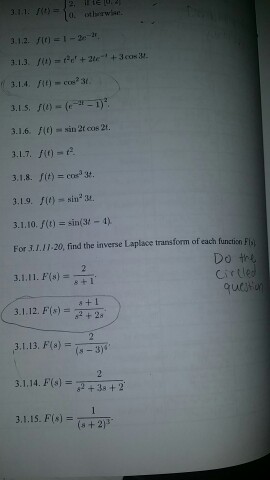 3.1.1. f(t) = { 2,
0, otherwise.
3.1.2. f(t) = 1 − 2e^{−2t}.
3.1.3. f(t) = t²eᵗ + 2te^{−t} + 3 cos 3t.
3.1.4. f(t) = cos² 3t.
3.1.5. f(t) = (e^{−2t} − 1)².
3.1.6. f(t) = sin 2t cos 2t.
3.1.7. f(t) = t².
3.1.8. f(t) = cos³ 3t.
3.1.9. f(t) = sin² 3t.
3.1.10. f(t) = sin(3t − 4).
For 3.1.11-20, find the inverse Laplace transform of each function F(s)
Do the
circled
question
3.1.11. F(s) = 2/(s + 1).
3.1.12. F(s) = (s + 1)/(s² + 2s).
3.1.13. F(s) = 2/(s − 3)⁴.
3.1.14. F(s) = 2/(s² + 3s + 2).
3.1.15. F(s) = 1/(s + 2)³.